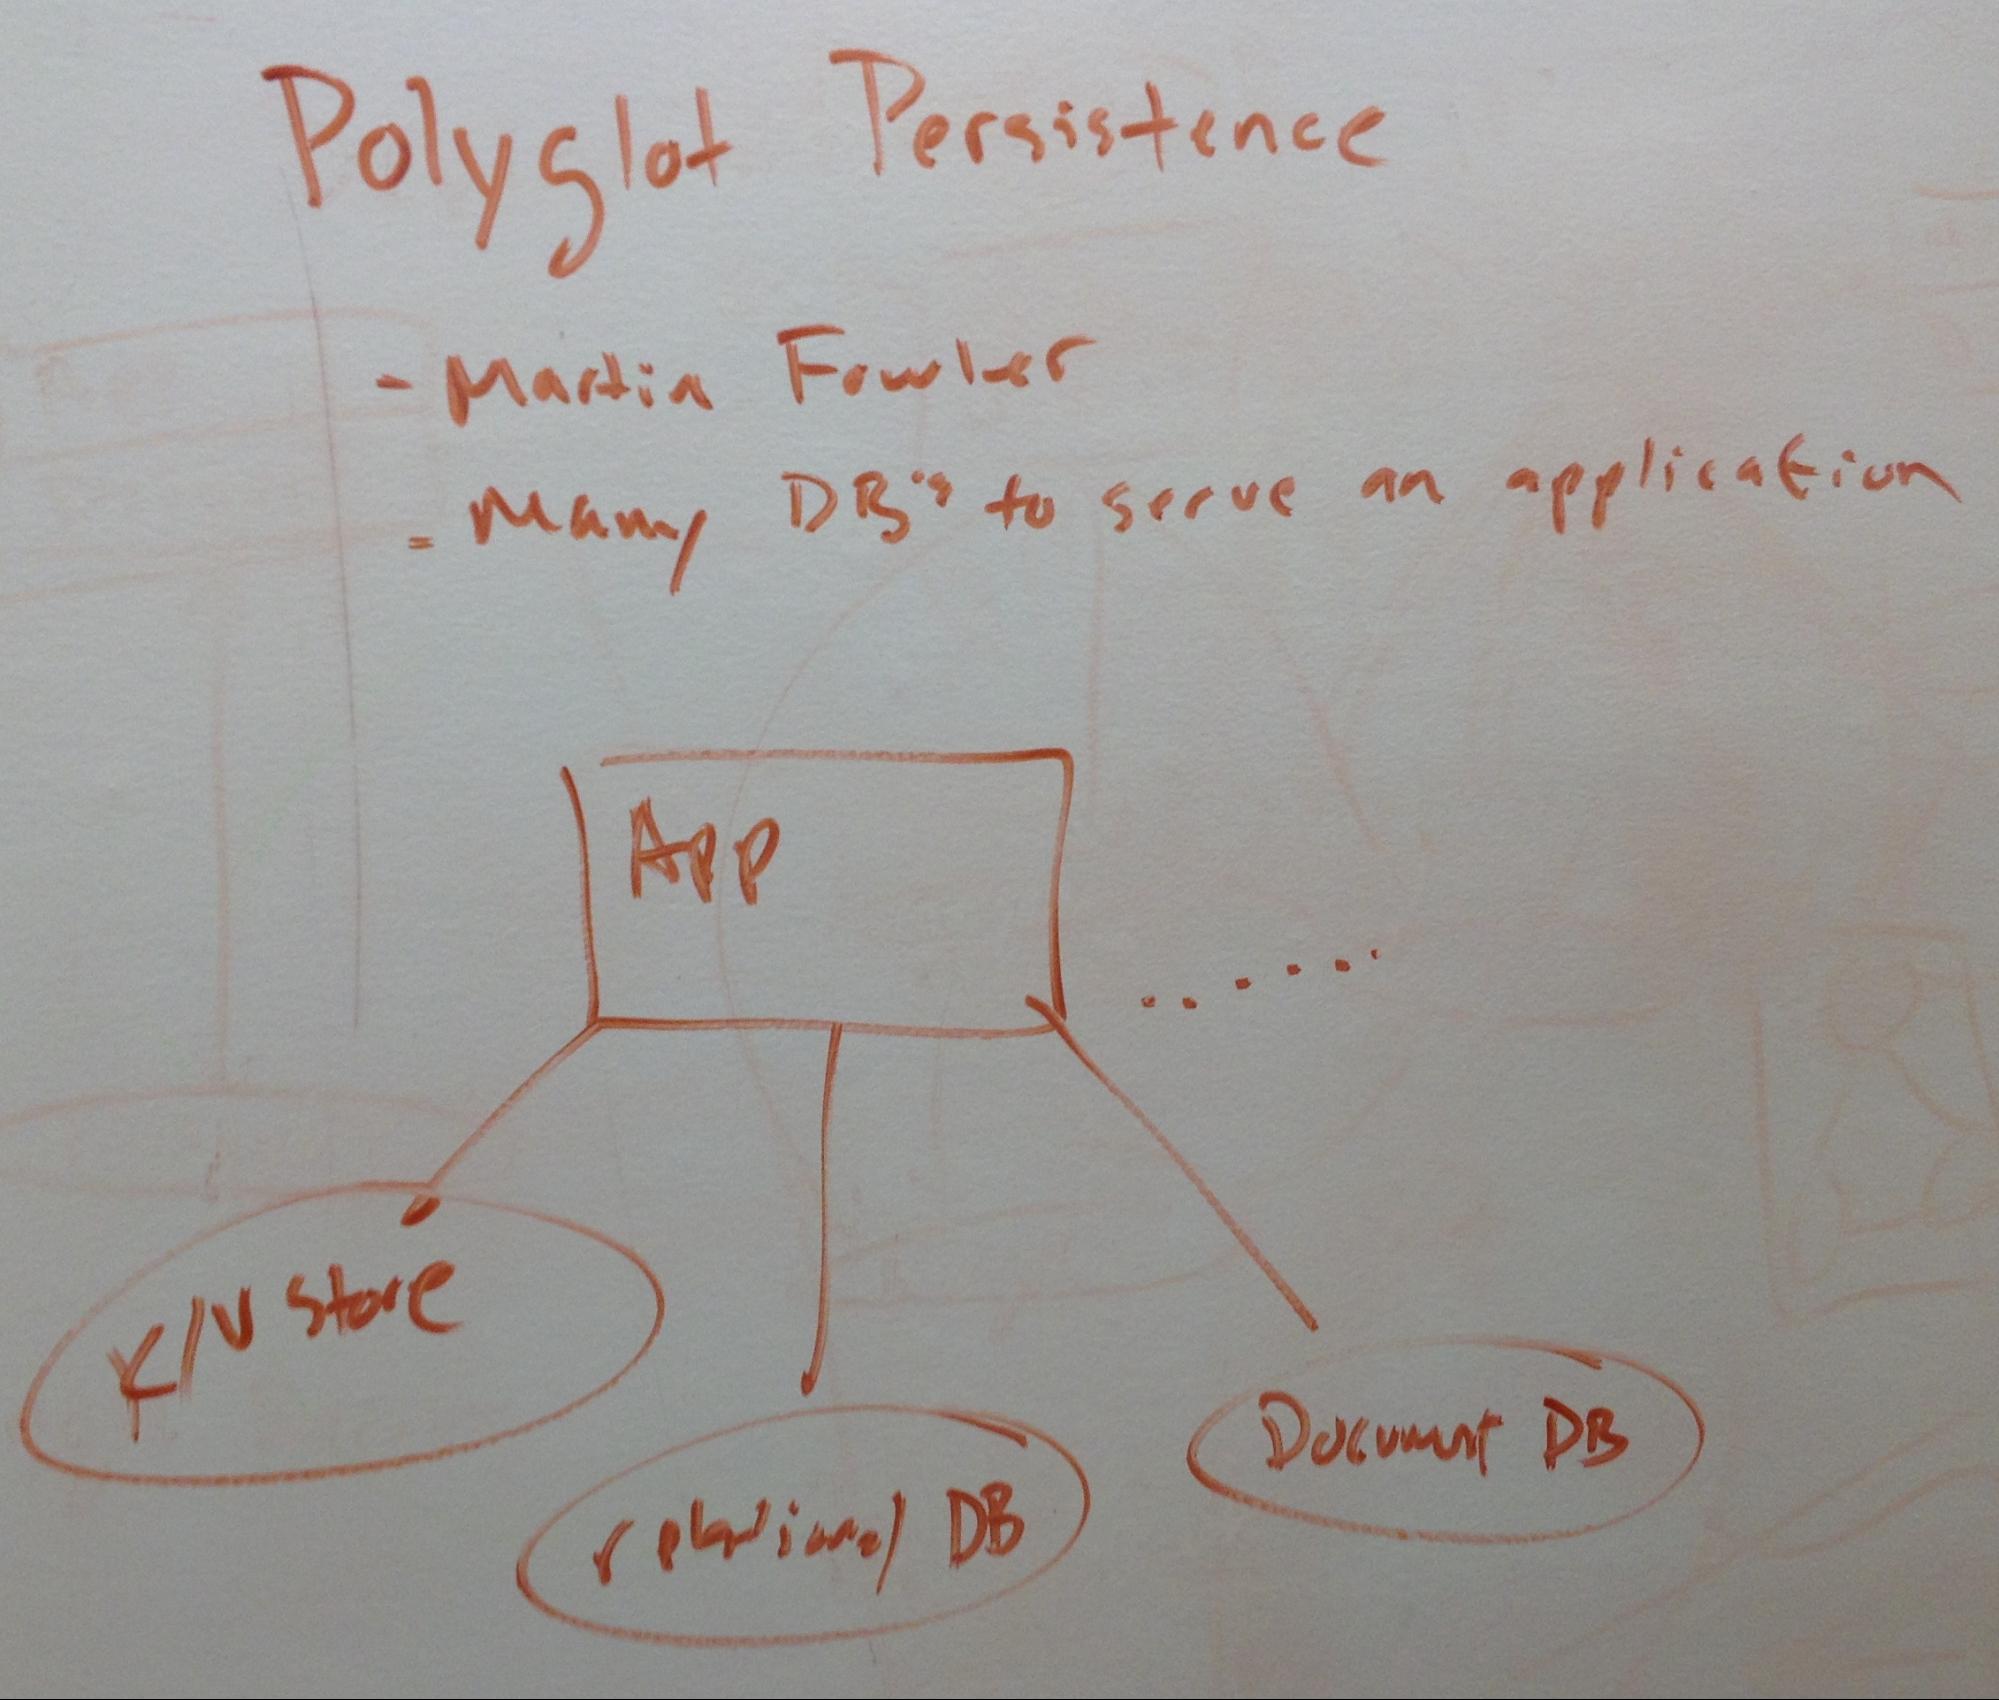 Polyglot Persistence
- Martin Fowler
- Many DB's to serve an application
App
K/V store
relational DB
Document DB